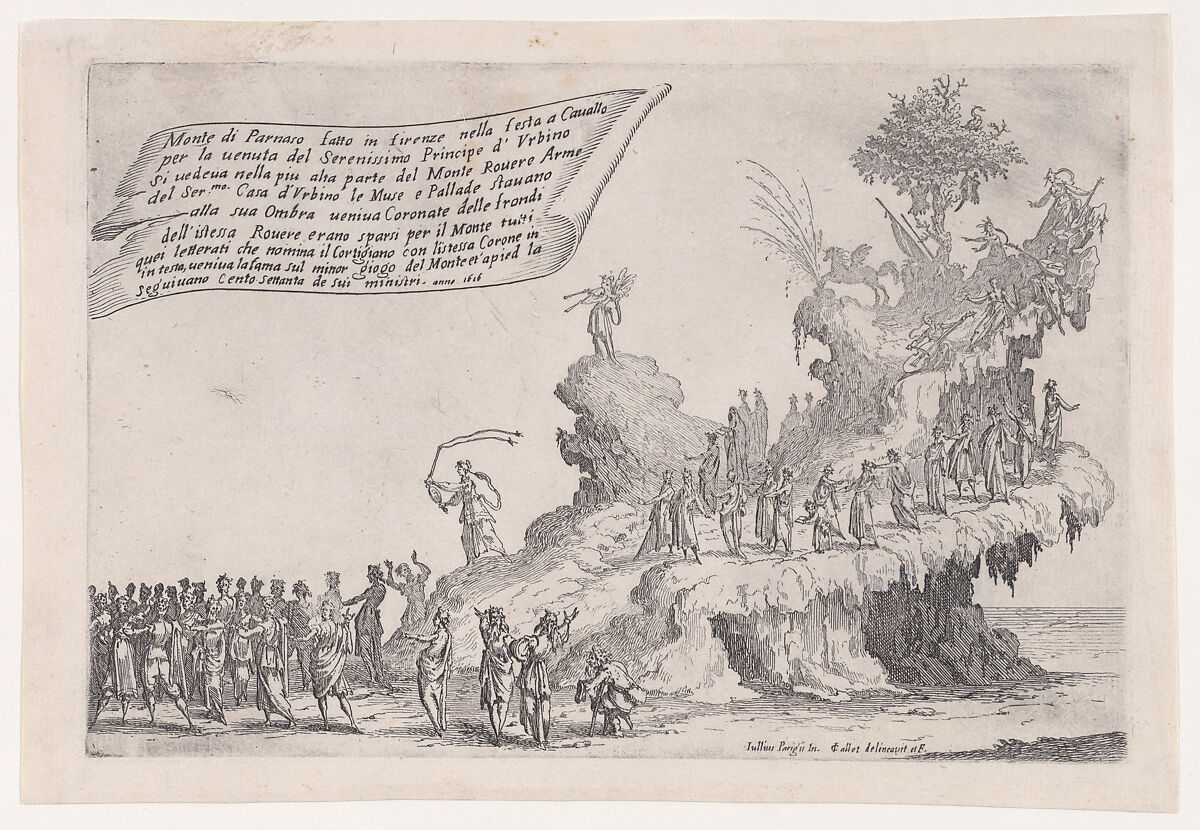 Monte di Parnaso fatto in firenze nella festa a Cauallo
per la uenuta del Serenissimo Principe d' Vrbino
Si uedeua nella piu alta parte del Monte Rouere Arme
del Ser.mo. Casa d'Vrbino le Muse e Pallade stauano
alla sua Ombra ueniua Coronate delle frondi
dell'istessa Rouere erano sparsi per il Monte tutti
quei letterati che nomina il Cortigiano con listessa Corone in
in testa, ueniua la fama sul minor giogo del Monte et apied la
seguiuano Cento settanta de sui ministri. anno 1616
Iullius Parigii In. Callot delineauit et F.